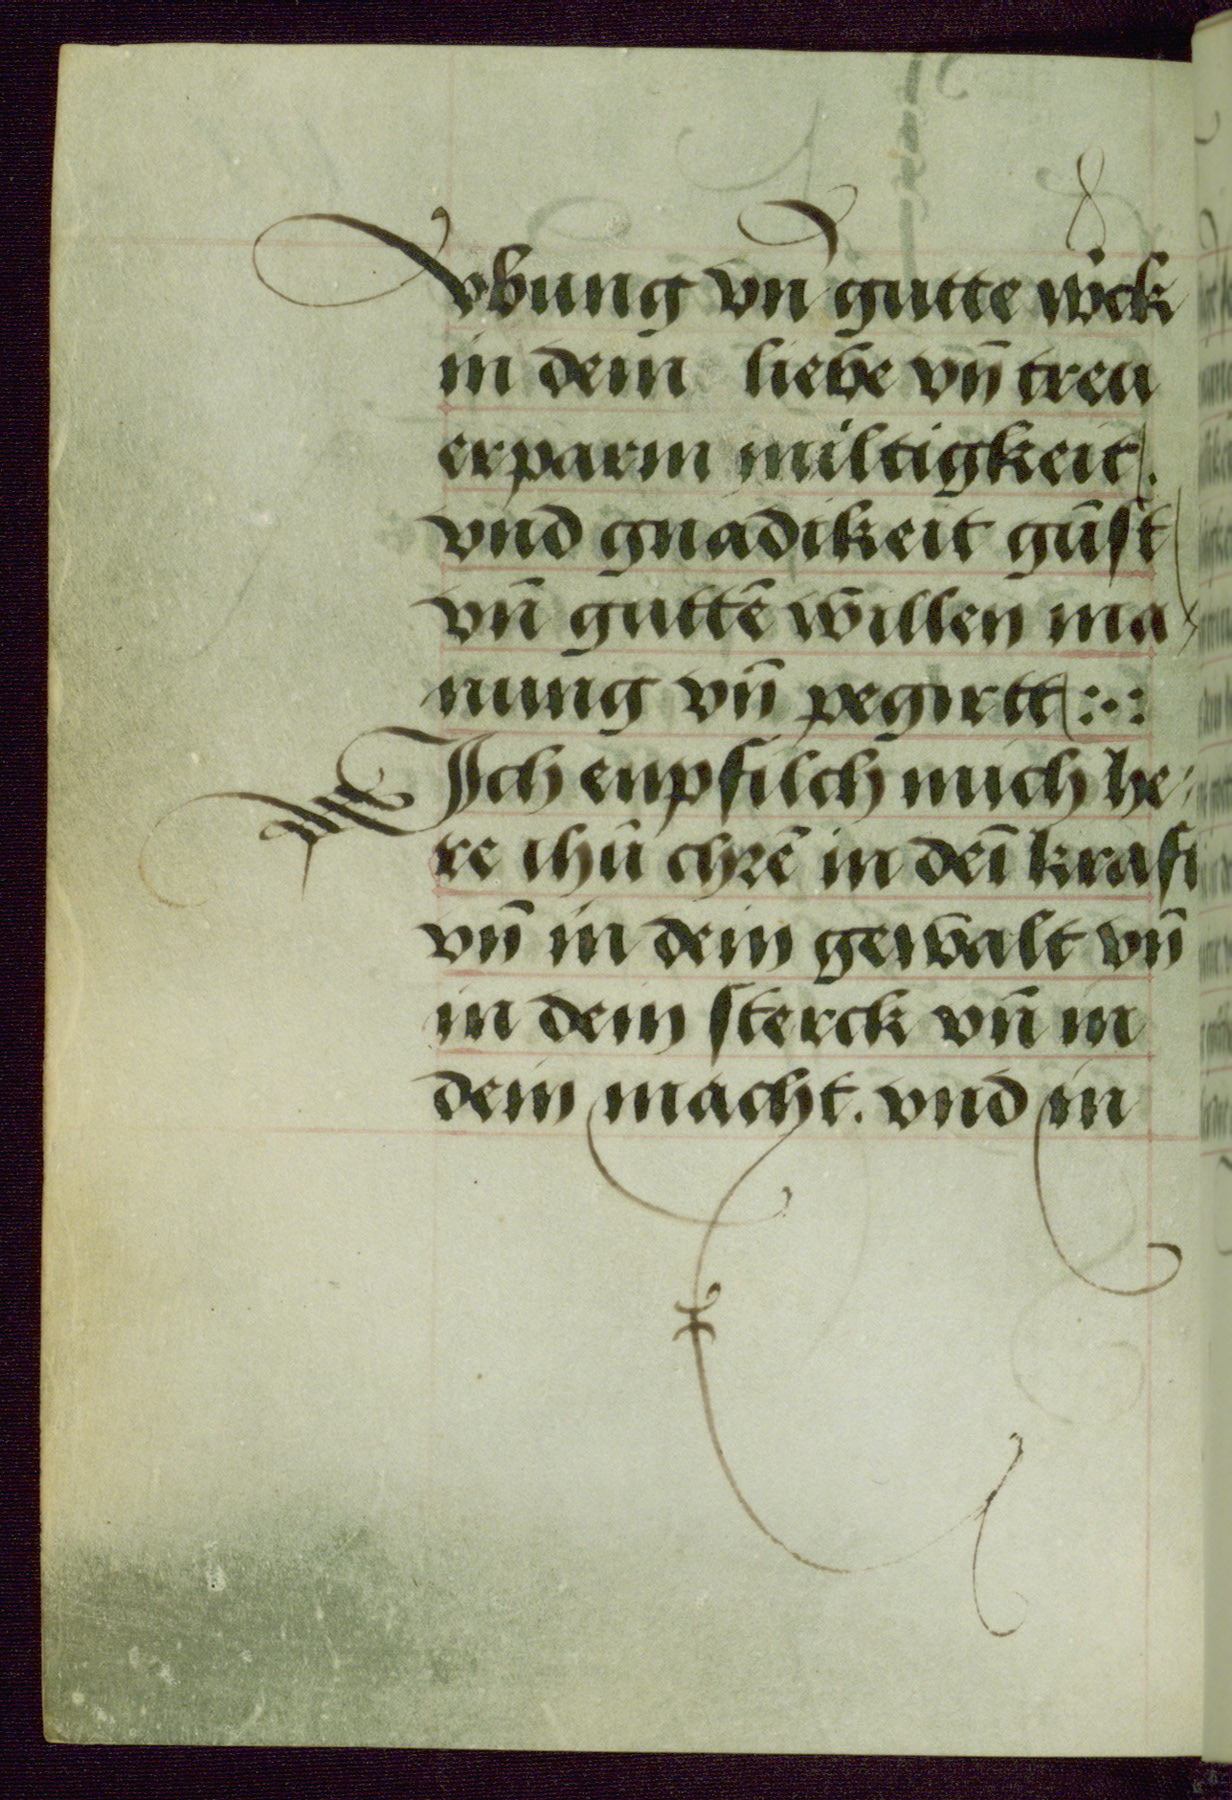 vbung vn̄ gutte wĕck
in dein liebe vn̄ treu
erparm miltigkeit.
vnd gnadikeit gūst
vn̄ guttē willen ma
nung vn̄ pegirtt :·:
Ich enpfilch mich he
re ihū chrē in deī kraft
vn̄ in dein gewalt vn̄
in dein sterck vn̄ in
dein macht. vnd in